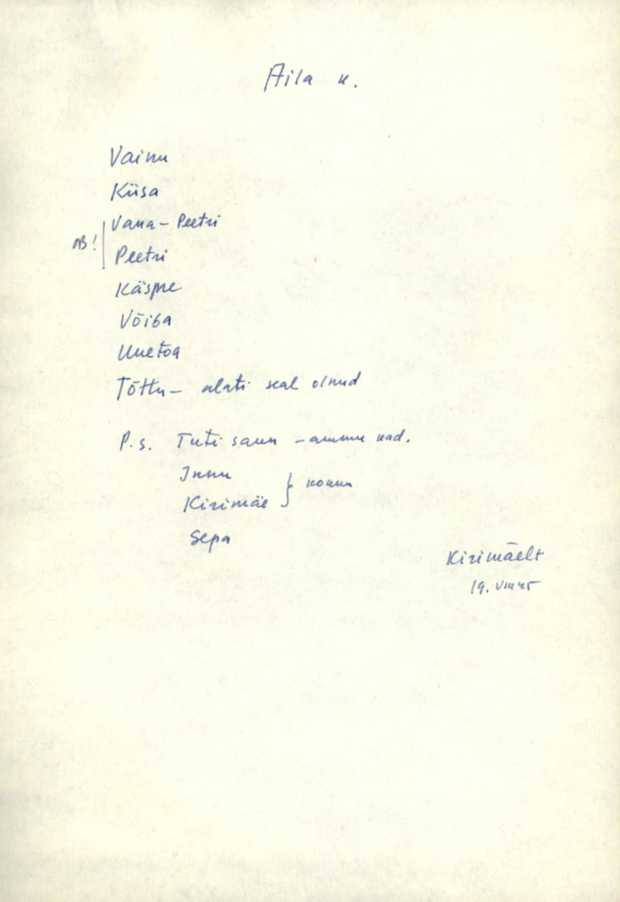 Aila k.
Vainu
Kiisa
Vana-Peetri
NB!
Peetri
Käspre
Võiba
Uuetoa
Tõttu - alati seal olnud
P.s. Tuti saun - ammu kad.
Innu
Kirimäe } kouna
Sepa
Kirimäelt
19.